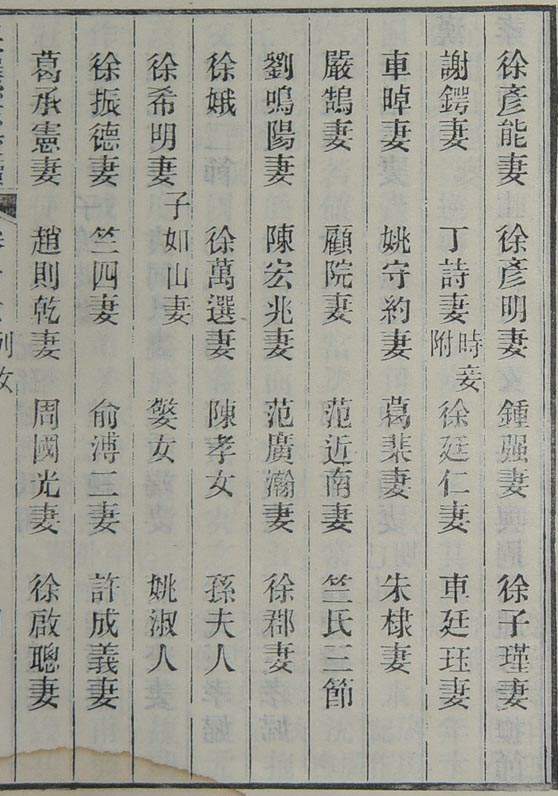 徐彥能妻 徐彥明妻 鍾强妻 徐子瑾妻
謝鍔妻 丁詩妻 時妾附 徐廷仁妻 車廷珏妻
車晫妻 姚守約妻 葛棐妻 朱棣妻
嚴鵠妻 顧院妻 范近南妻 竺氏三節
劉鳴陽妻 陳宏兆妻 范廣瀚妻 徐郡妻
徐娥 徐萬選妻 陳孝女 孫夫人
徐希明妻 子如山妻 嫠女 姚淑人
徐振德妻 竺四妻 俞溥二妻 許成義妻
葛承憲妻 趙則乾妻 周國光妻 徐啟聰妻
列女